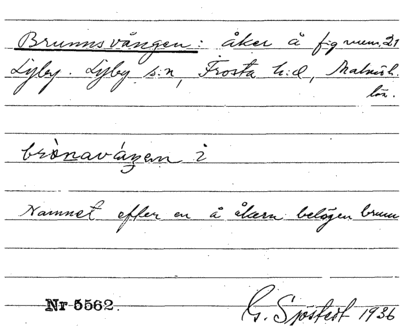 Brunnsvången: åker å fig num 21
Lyby. Lyby s:n, Frosta h:d, Malmöh.
län.
brònaváŋen i
Namnet efter en å åkern belägen brunn
Nr 5562.
G. Sjöstedt 1936